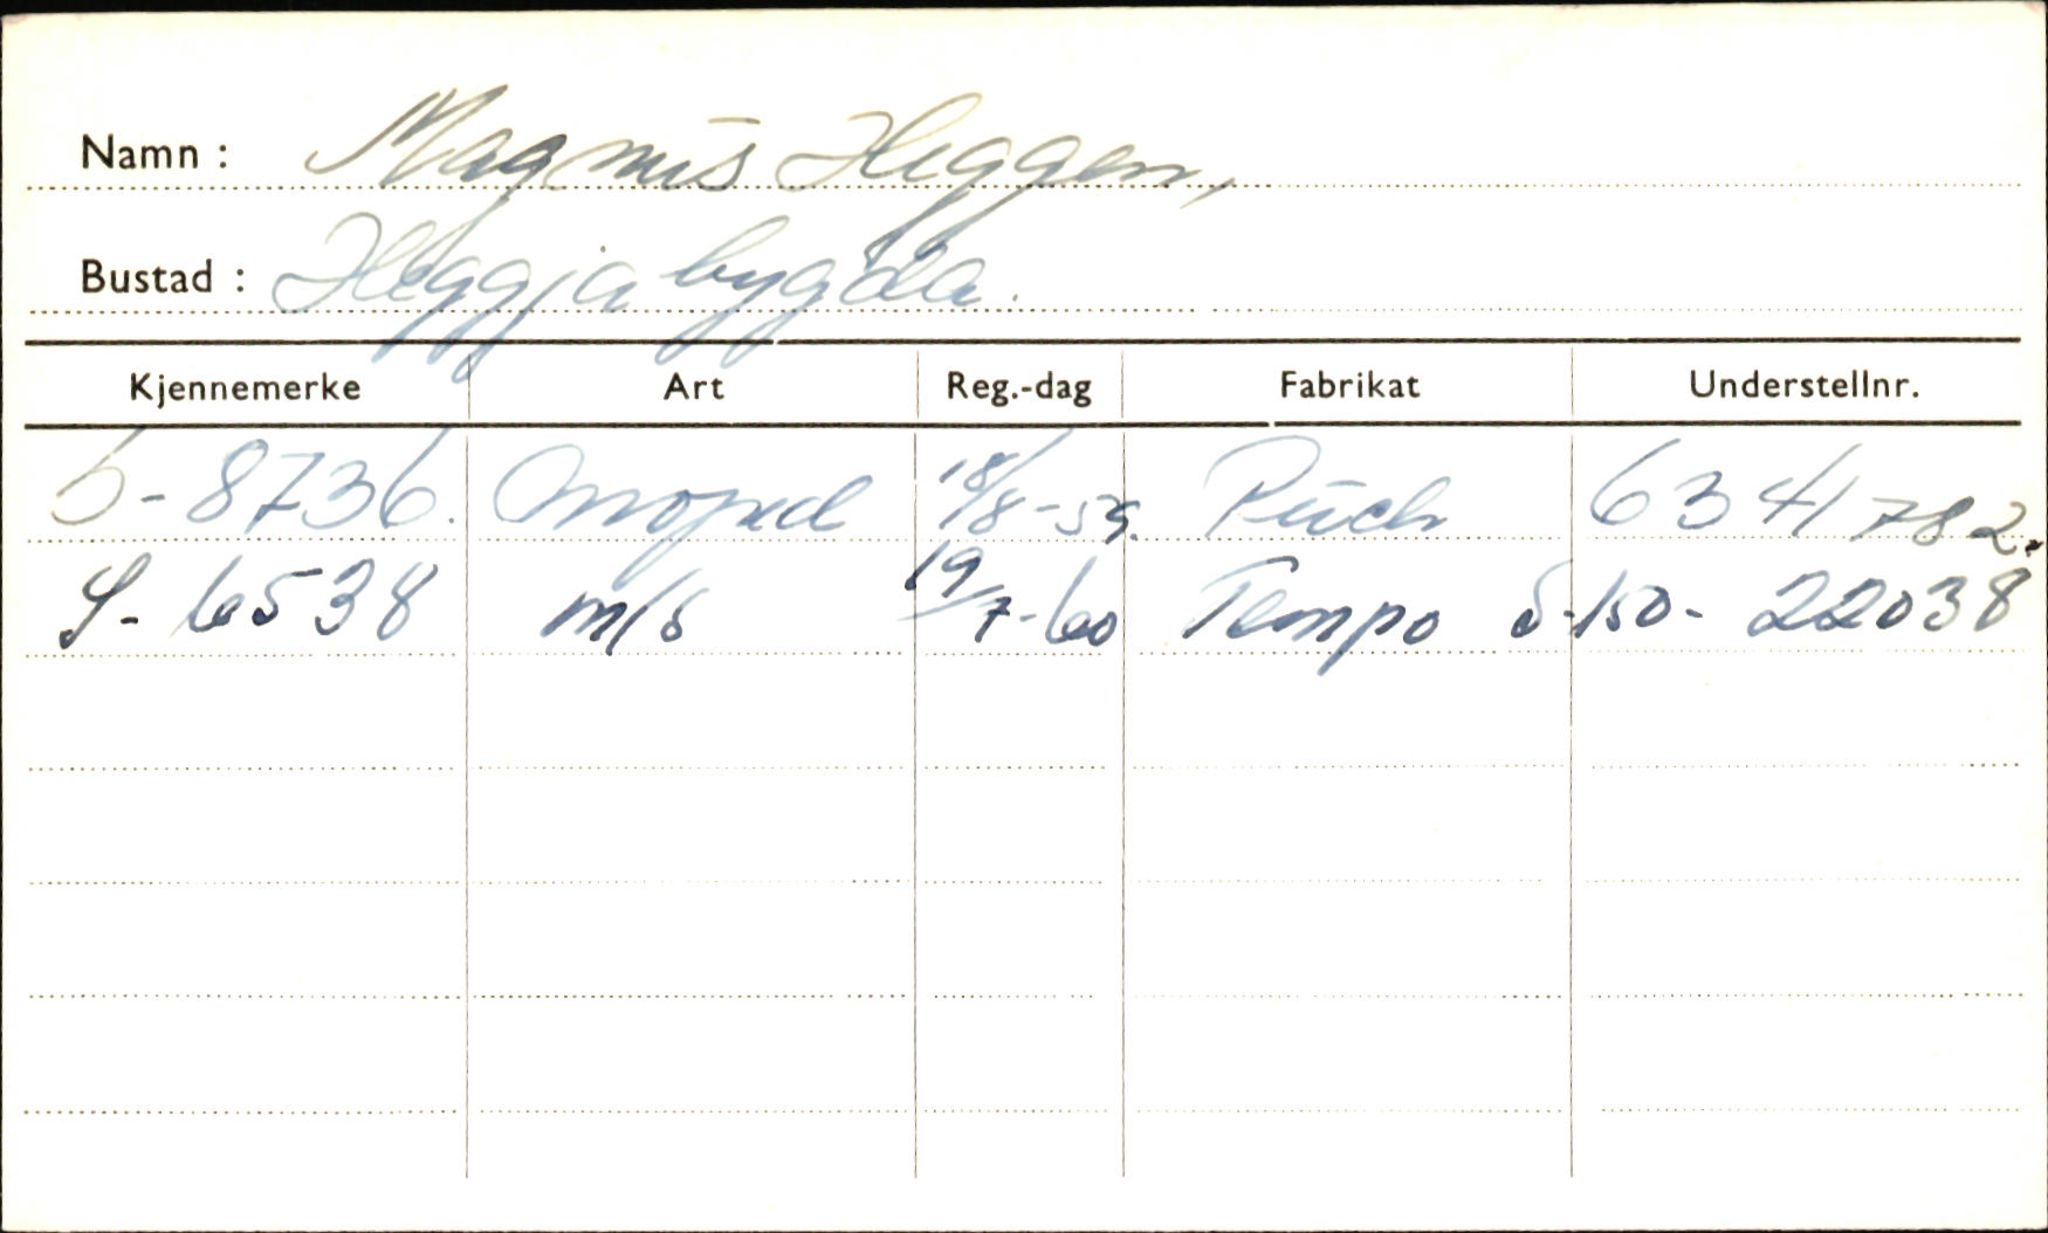 Namn : Magnus Heggen,
Bustad : Heggjabygda.
Kjennemerke Art Reg.-dag Fabrikat Understellnr.
S-8736. Moped 18/8-59. Puch 6341782.
S-6538 m/s 19/7-60 Tempo S-150-22038